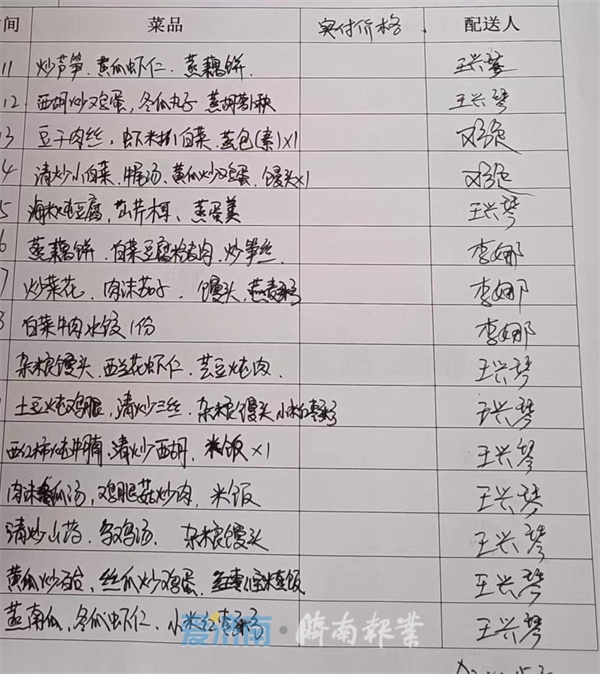 间 菜品 实付价格 配送人
11 炒芦笋、黄瓜虾仁、蒸藕饼 王兴琴
12 西胡炒鸡蛋,冬瓜丸子 蒸胡萝卜秧 王兴琴
13 豆干肉丝,虾米扒白菜,蒸包(素)×1
4 清炒小白菜,牛尾汤,黄瓜炒鸡蛋,馒头×1
5 海米炖豆腐, 木耳、蒸蛋羹 王兴琴
6 蒸藕饼 白菜豆腐炖肉、炒笋丝 李娜
7 炒菜花、肉沫茄子、馒头、燕麦粥 李娜
8 白菜牛肉水饺1份 李娜
杂粮馒头、西兰花虾仁、芸豆炖肉、 王兴琴
土豆炖鸡腿,清炒三丝,杂粮馒头 小米红枣粥 王兴琴
西红柿炖牛腩,清炒西胡,米饭×1 王兴琴
肉沫 瓜汤,鸡腿菇炒肉,米饭 王兴琴
清炒山药、乌鸡汤、杂粮馒头 王兴琴
黄瓜炒 ,丝瓜炒鸡蛋, 饭 王兴琴
蒸南瓜,冬瓜虾仁、小米红枣粥 王兴琴
爱济南·济南报业